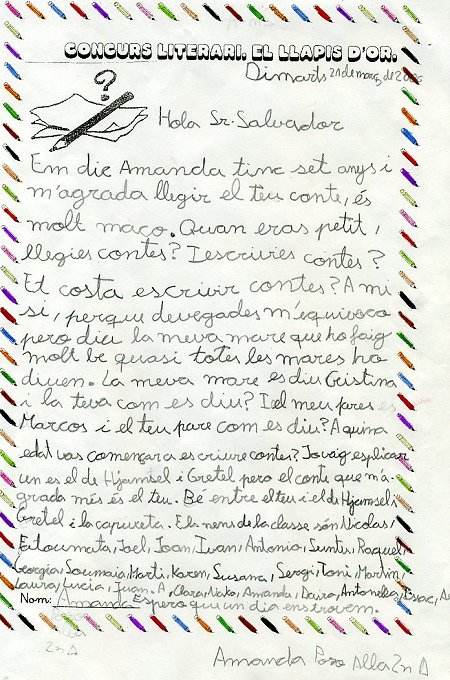 CONCURS LITERARI. EL LLAPIS D'OR.
Dimarts 21 de març de 2006
?
Hola Sr. Salvador
Em dic Amanda tinc set anys i
m'agrada llegir el teu conte, és
molt maco. Quan eras petit,
llegies contes? I escrivies contes?
Et costa escriurir contes? A mi
si, perque devegades m'equivoco
pero diu la meva mare que ho faig
molt be quasi totes les mares ho
diuen. La meva mare es diu Cristina
i la teva com es diu? I el meu pares es
Marcos i el teu pare com es diu? A quina
edat vas començar a escriure contes? Jo vaig esplicar
un es el de Hjamsel i Gretel pero el conte que m'a-
grada més és el teu. Bé entre el teu i el de Hjamsel i
Gretel i la caputxeta. Els nens de la classe són Nicolas,
Fatoumata, Joel, Joan, Ivan, Antonio, Suntu, Raquel,
Georgia, Soumaia, Marti, Karen, Susana, Sergi, Toni, Martin,
Laura, Lucia, Juan. A, Clara, Nako, Amanda, Daira, Antonella, Isaac,
Nom: Amanda Espero que un dia ens trovem.
2n A
Amanda Pozo Alba 2n A